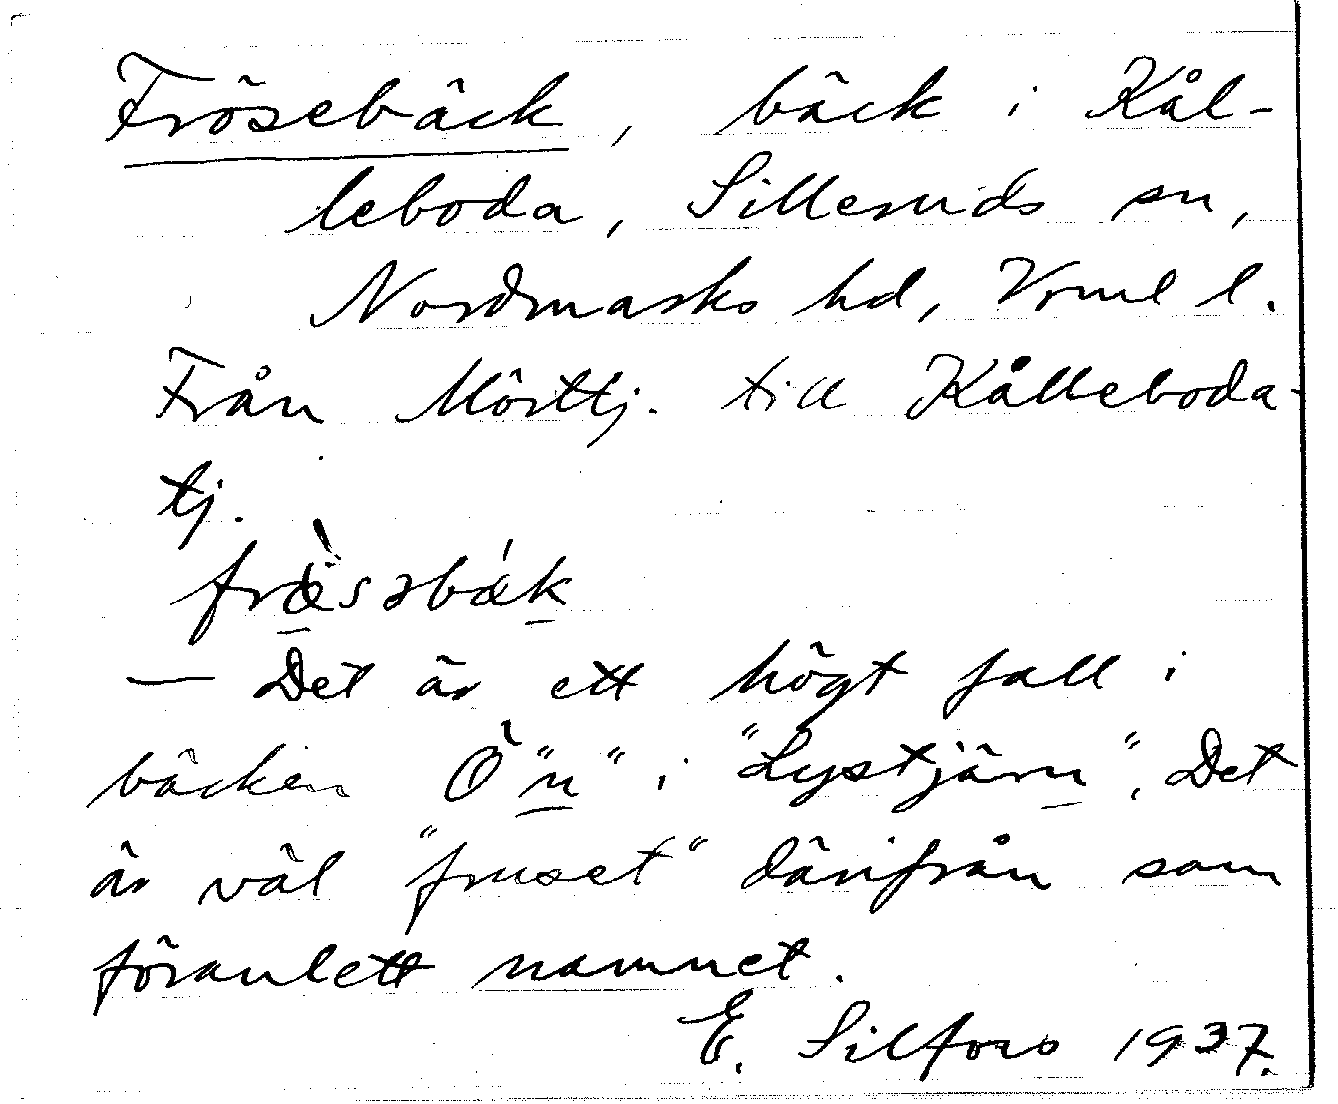 Frösebäck, bäck i Kål-
leboda, Silleruds sn,
Nordmarks hd, Vrml l.
Från Mörttj. till Kålleboda-
tj.
frø̀səbǽk
— Det är ett högt fall i
bäcken Ö "n" i "Lystjärn". Det
är väl "fruset" därifrån som
föranlett namnet.
E. Silfors 1937.